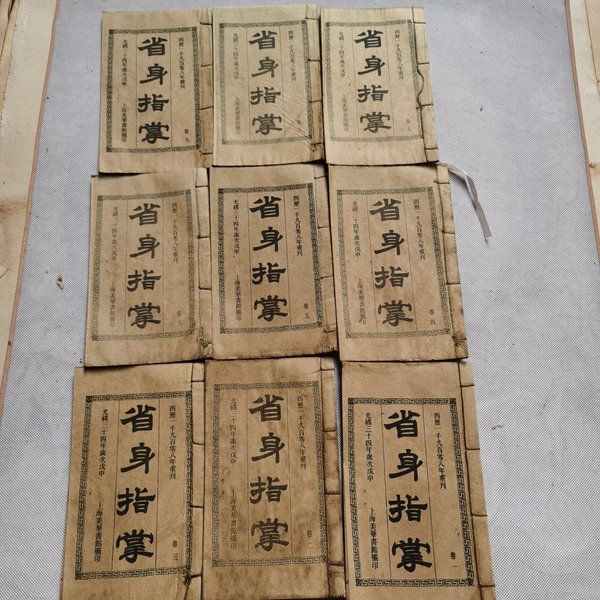 西歷一千九百零八年重刊
卷九
省身指掌
光緒三十四年歲次戊申
上海美華書館擺印
西歷一千九百零八年重刊
卷
省身指掌
光緒三十四年歲次戊申
上海美華書館擺印
西歷一千九百零八年重刊
卷
省身指掌
光緒三十四年歲次戊申
上海美華書館擺印
西歷一千九百零八年重刊
卷
省身指掌
光緒三十四年歲次戊申
上海美華書館擺印
西歷一千九百零八年重刊
卷五
省身指掌
光緒三十四年歲次戊申
上海美華書館擺印
西歷一千九百零八年重刊
卷四
省身指掌
光緒三十四年歲次戊申
上海美華書館擺印
西歷一千九百零八年重刊
卷三
省身指掌
光緒三十四年歲次戊申
上海美華書館擺印
西歷一千九百零八年重刊
卷
省身指掌
光緒三十四年歲次戊申
上海美華書館擺印
西歷一千九百零八年重刊
卷一
省身指掌
光緒三十四年歲次戊申
上海美華書館擺印